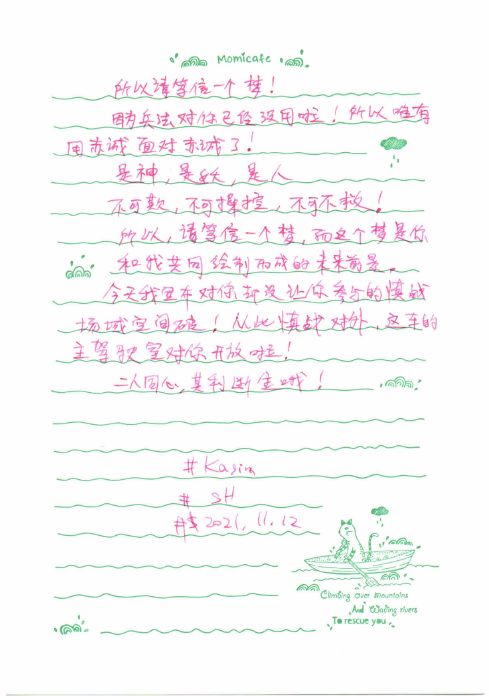 Momicafe
所以请等信一个梦！
因为兵法对你已经没用啦！所以唯有
用赤诚面对赤诚了！
是神，是妖，是人
不可欺，不可操控，不可不救！
所以，请等信一个梦，而这个梦是你
和我共同绘制而成的未来前景。
今天我宣布对你却没让你参与的慎战
场域空间破！从此慎战对外，这车的
主驾驶室对你开放啦！
二人同心，其利断金哦！
# Kasim
# SH
# 2021.11.12
Climbing over mountains
And Wading rivers
To rescue you